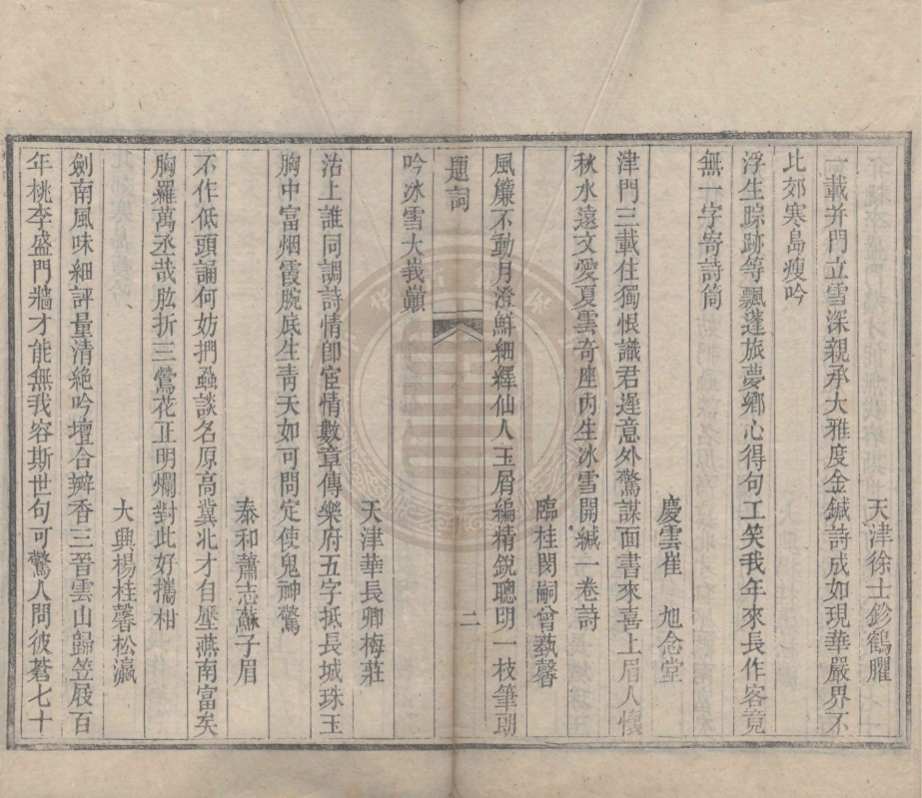 天津徐士鉁鶴臞
一載并門立雪深親承大雅度金鍼詩成如現華嚴界不
比郊寒島瘦吟
浮生踪跡等飄蓬旅夢鄉心得句工笑我年來長作客竟
無一字寄詩筒
慶雲崔旭念堂
津門三載住獨恨識君遲意外驚謀面書來喜上眉人懷
秋水遠文愛夏雲奇座內生冰雪開緘一卷詩
臨桂閔嗣曾蓺馨
風簾不動月澄鮮細繹仙人玉屑編精銳聰明一枝筆朗
題詞
二
吟冰雪大峩巔
天津華長卿梅莊
沽上誰同調詩情卽宦情數章傳樂府五字抵長城珠玉
胸中富烟霞腕底生靑天如可問定使鬼神驚
泰和蕭志蘇子眉
不作低頭誦何妨捫蝨談名原高冀北才自壓燕南富矣
胸羅萬丞哉肱折三鶯花正明爛對此好攜柑
大興楊桂馨松瀛
劍南風味細評量清絶吟壇合瓣香三晉雲山歸笠屐百
年桃李盛門牆才能無我容斯世句可驚人問彼蒼七十